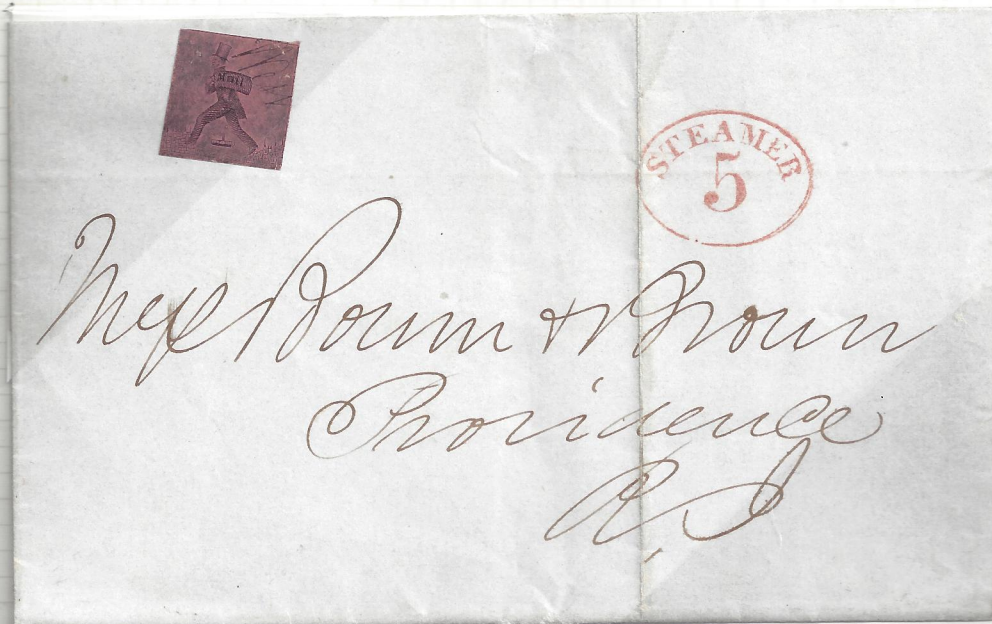 Mail
STEAMER
5
Mess
& Brown
Providence
R.I